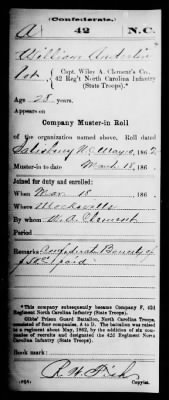 (Confederate.)
A 42 N.C.
William
Pvt., Capt. Wiley A. Clement's Co.,
42 Reg't North Carolina Infantry
(State Troops).*
Age 25 years.
Appears on
Company Muster-in Roll
of the organization named above. Roll dated
Salisbury N.C. May 2, 186 2
Muster-in to date March 18, 186
Joined for duty and enrolled:
When Mar 18, 186
Where Mocksville
By whom W. A. Clement
Period
Remarks: Confederate Bounty of
$50 paid
*This company subsequently became Company F, 42d
Regiment North Carolina Infantry (State Troops).
Gibbs' Prison Guard Battalion, North Carolina Troops,
consisted of four companies, A to D. The battalion was raised
to a regiment about May, 1862, by the addition of six companies
or recruits and designated the 42d Regiment North
Carolina Infantry (State Troops).
Book mark:
R. W. Fish
Copyist.